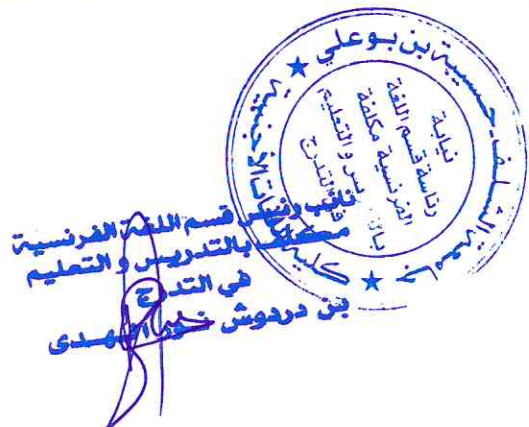 جامعة الشلف حسيبة بن بوعلي
★ كلية اللغات الأجنبية ★
نيابة
رئاسة قسم اللغة
الفرنسية مكلفة
بالتدريس والتعليم
في التدرج
نائب رئيس قسم اللغة الفرنسية
مكلف بالتدريس و التعليم
في التدرج
بن دردوش نور الهدى